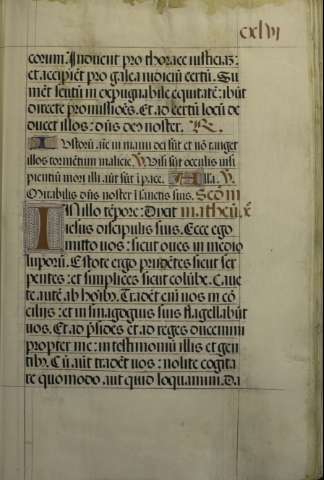 cxlvi
eorum: Induent pro thorace iusticiaʒ:
et accipient pro galea iudiciū certū. Su
mēt scutū inexpugnabile equitatē: ibūt
directe promissiōes. Et ad certū locū de
ducet illos: dn̄s deus noster. R.
Iustorū aīe in manu dei sūt et nō tanget
illos tormētum malicie. V. Visi sūt oculis insi
pientiū mori illi aūt sūt ī pace. Alla. V.
Mirabilis dn̄s noster ī sanctis suis. Scd̄m
In illo tēpore: Dixit matheū.
iesus discipulis suis. Ecce ego
mitto uos: sicut oues in medio
luporū. Estote ergo prudētes sicut ser
pentes: et simplices sicut colūbe. Caue
te autē ab hoībʒ. Tradēt enī uos in cō
cilijs: et in sinagoguis suis flagellabūt
uos. Et ad p̄sides et ad reges ducemini
propter me: in testimoniū illis et gen
tibʒ. Cū aūt tradēt uos: nolite cogita
re quomodo, aut quid loquamini. Da